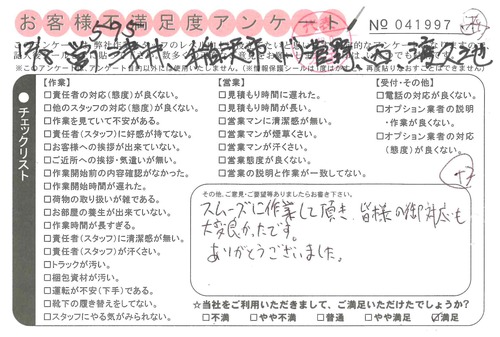 お客様不満足度アンケート
No 041997
チェックリスト
【作業】
□責任者の対応(態度)が良くない。
□他のスタッフの対応(態度)が良くない。
□作業を見ていて不安がある。
□責任者(スタッフ)に好感が持てない。
□お客様への挨拶が出来ていない。
□ご近所への挨拶・気遣いが無い。
□作業開始前の内容確認がなかった。
□作業開始時間が遅れた。
□荷物の取り扱いが雑である。
□お部屋の養生が出来ていない。
□作業時間が長すぎる。
□責任者(スタッフ)に清潔感が無い。
□責任者(スタッフ)が汗くさい。
□トラックが汚い。
□梱包資材が汚い。
□運転が不安(下手)である。
□靴下の履き替えをしてない。
□スタッフにやる気がみられない。
【営業】
□見積もり時間に遅れた。
□見積もり時間が長い。
□営業マンに清潔感が無い。
□営業マンが煙草くさい。
□営業マンが汗くさい。
□営業態度が良くない。
□営業の説明と作業が一致してない。
【受付・その他】
□電話の対応が良くない。
□オプション業者の説明
・作業が良くない。
□オプション業者の対応
(態度)が良くない。
その他、ご意見・ご要望等ありましたらお書き下さい。
スムーズに作業して頂き、皆様の御対応も
大変良かったです。
ありがとうございました。
☆当社をご利用いただきまして、ご満足いただけたでしょうか?
□不満 □やや不満 □普通 □やや満足 ☑満足